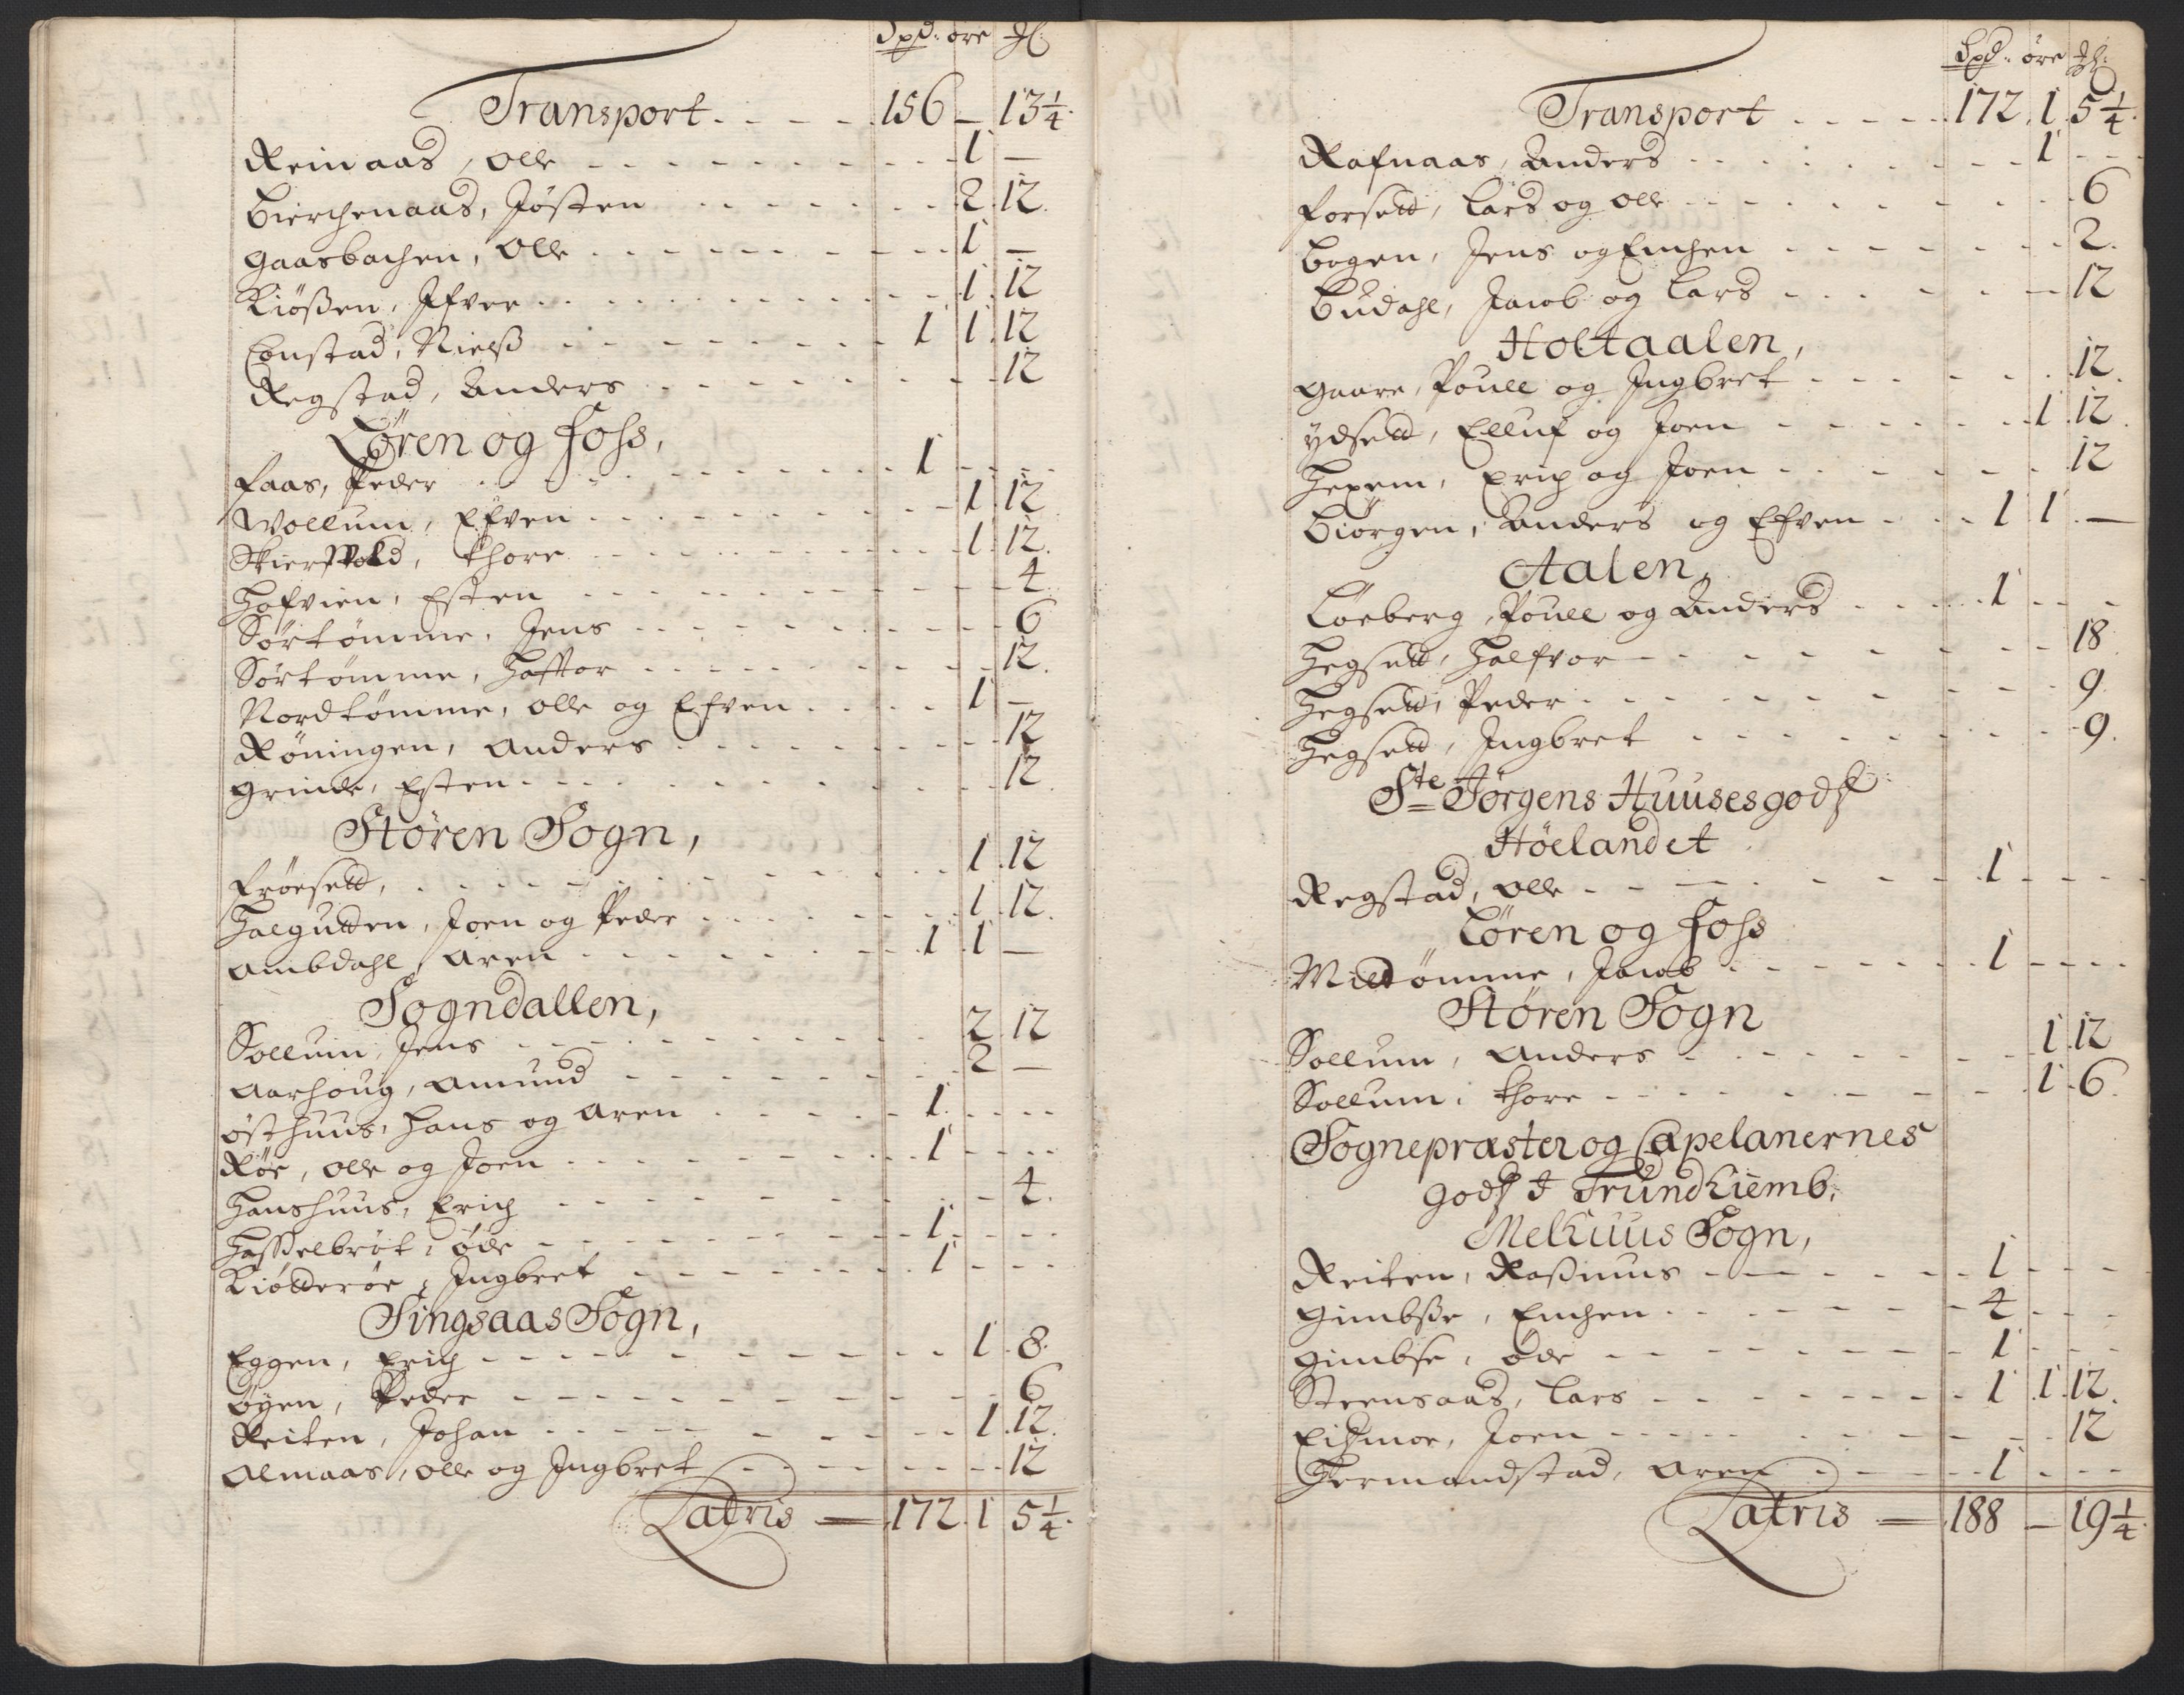 Spd: øre Ml:
Transport 156 — 13¼
Reinaas, Olle 1 —
Bierchenaas, Jøsten 2 12
Gaasbachen, Olle 1 —
Kiøßen, Ifver 1 12
Constad, Nielß 1 1 12
Regstad, Anders 12
Løren og Foss,
Faas, Peder 1
Wollum, Efven 1 12
Skierfvold, Thore 1 12
Hofvien, Esten 4
Sørtømme, Jens 6
Sørtømme, Haftor 12
Nordtømme, Olle og Efven 1 —
Røningen, Anders 12
Grinde, Esten 12
Støren Sogn,
Frøesett, 1 12
Halgutten, Joen og Peder 1 12
Ambdahl, Aren 1 1 —
Sogndallen,
Sollum, Jens 2 12
Aarhoug, Amund 2 —
Østhuus, Hans og Aren 1
Røe, Olle og Joen 1
Hanshuus, Erich 4
Hasselbrøt, øde 1
Kiøtterøe, Ingbret 1
Singsaas Sogn,
Eggen, Erich 1 8
Øyen, Peder 6
Reiten, Johan 1 12
Almaas, Olle og Ingbret 12
Latris — 172 1 5¼
Spd: øre Ml:
Transport 172 1 5¼
Rafnaas, Anders 1
Forsett, Lars og Olle 6
Bogen, Jens og Enchen 2
Budahl, Jacob og Lars 12
Holtaalen,
Gaare, Pouel og Ingbret 12
Ydsett, Elluf og Joen 1 12
Hexem, Erich og Joen 12
Biørgen, Anders og Efven 1 1 —
Aalen,
Løeberg, Pouel og Anders 1
Hegsett, Halfvor 18
Hegsett, Peder 9
Hegsett, Ingbret 9
Ste Jørgens Huuses gods
Høelandet
Regstad, Olle 1
Løren og Foss
Miltømme, Jacob 1
Støren Sogn
Sollum, Anders 1 12
Sollum, Thore 1 6
Sognepræster og Capelanernes
gods I Trundhiemb,
Melhuus Sogn,
Reiten, Raßmus 1
Gimbße, Enchen 4
Gimbse, øde 1
Steensaas, Lars 1 1 12
Joen 12
Hermandstad, Aren 1
Latris — 188 — 19¼